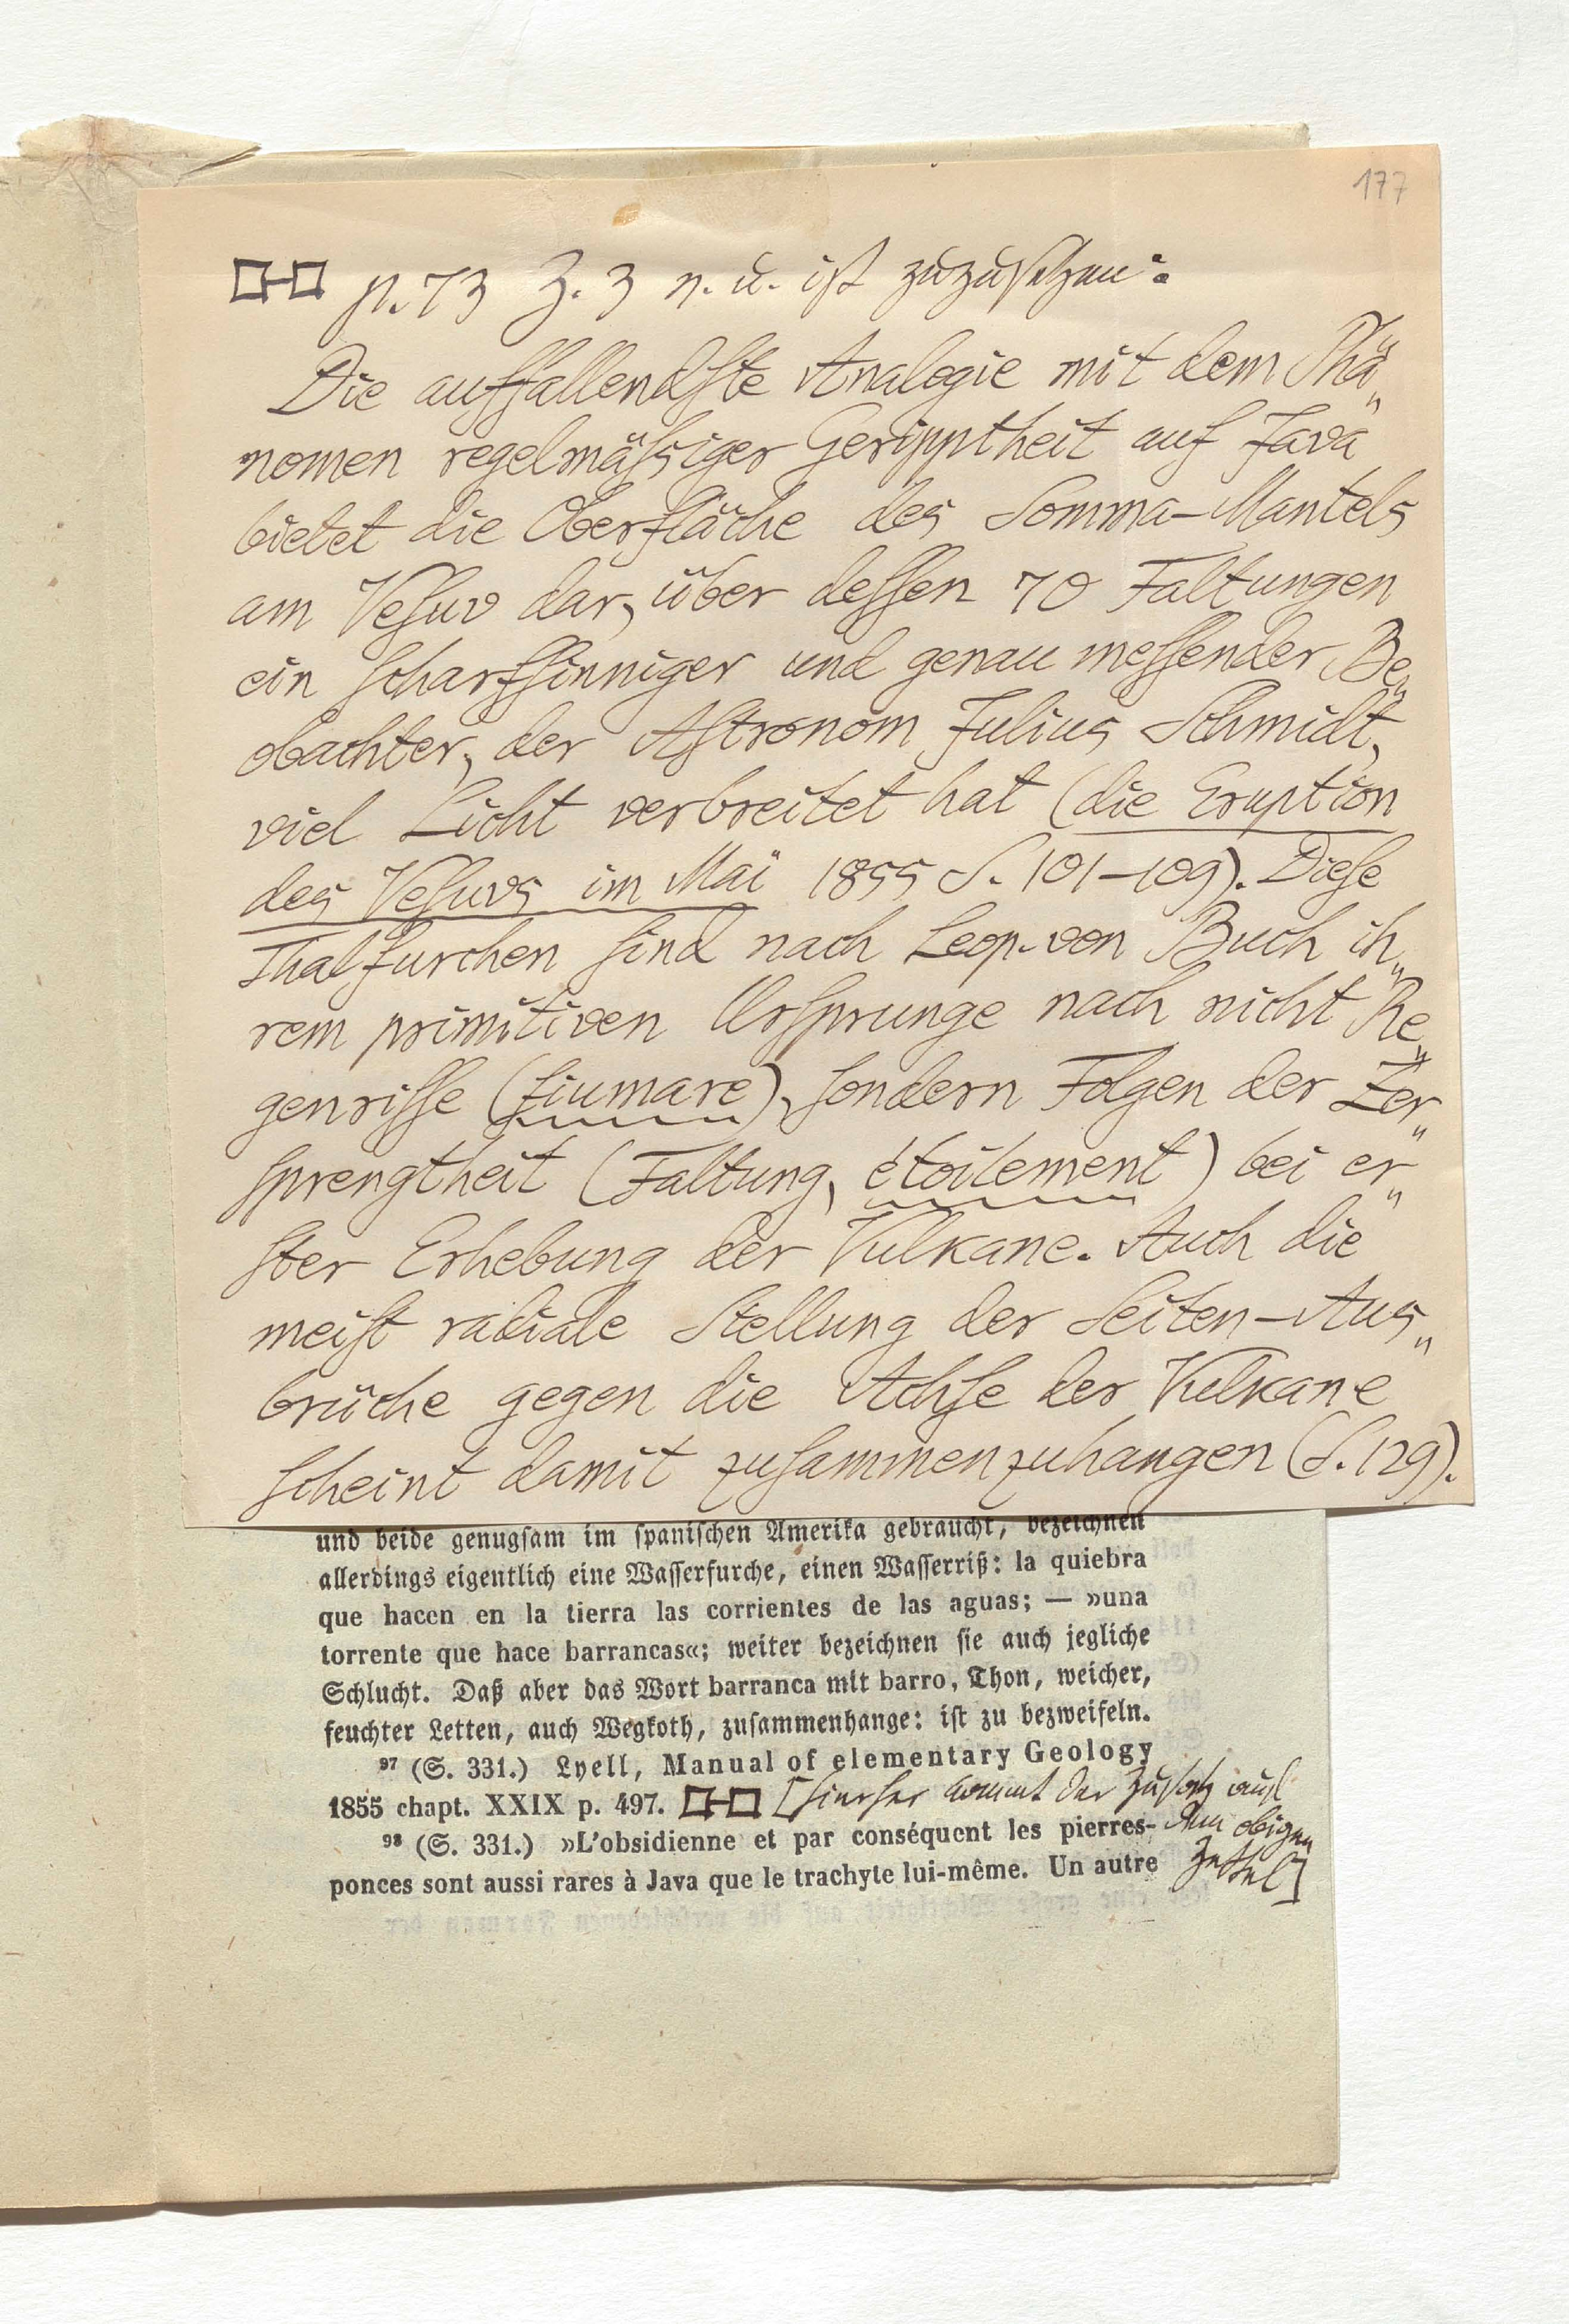 177
p. 73 Z. 3 v. u. ist zuzusetzen:
Die auffallendste Analogie mit dem Phä„
nomen regelmäßiger Geripptheit auf Java
bietet die Oberfläche des Somma-Mantels
am Vesuv dar, über dessen 70 Faltungen
ein scharfsinniger und genau messender Be„
obachter, der Astronom Julius Schmidt,
viel Licht verbreitet hat (die Eruption
des Vesuvs im Mai 1855 S. 101-109). Diese
Thalfurchen sind nach Leop. von Buch ih„
rem primitiven Ursprunge nach nicht Re„
genrisse (fiumare), sondern Folgen der Zer„
sprengtheit (Faltung, étoilement) bei er„
ster Erhebung der Vulkane. Auch die
meist radiale Stellung der Seiten-Aus„
brüche gegen die Achse der Vulkane
scheint damit zusammenzuhangen (S. 129).
und beide genugsam im spanischen Amerika gebraucht, bezeichnen
allerdings eigentlich eine Wasserfurche, einen Wasserriß: la quiebra
que hacen en la tierra las corrientes de las aguas; — »una
torrente que hace barrancas«; weiter bezeichnen sie auch jegliche
Schlucht. Daß aber das Wort barranca mit barro, Thon, weicher,
feuchter Letten, auch Wegkoth, zusammenhange: ist zu bezweifeln.
97 (S. 331.) Lyell, Manual of elementary Geology
1855 chapt. XXIX p. 497. [hierher kommt der Zusatz auf
dem obigen
Zettel]
98 (S. 331.) »L'obsidienne et par conséquent les pierres-
ponces sont aussi rares à Java que le trachyte lui-même. Un autre